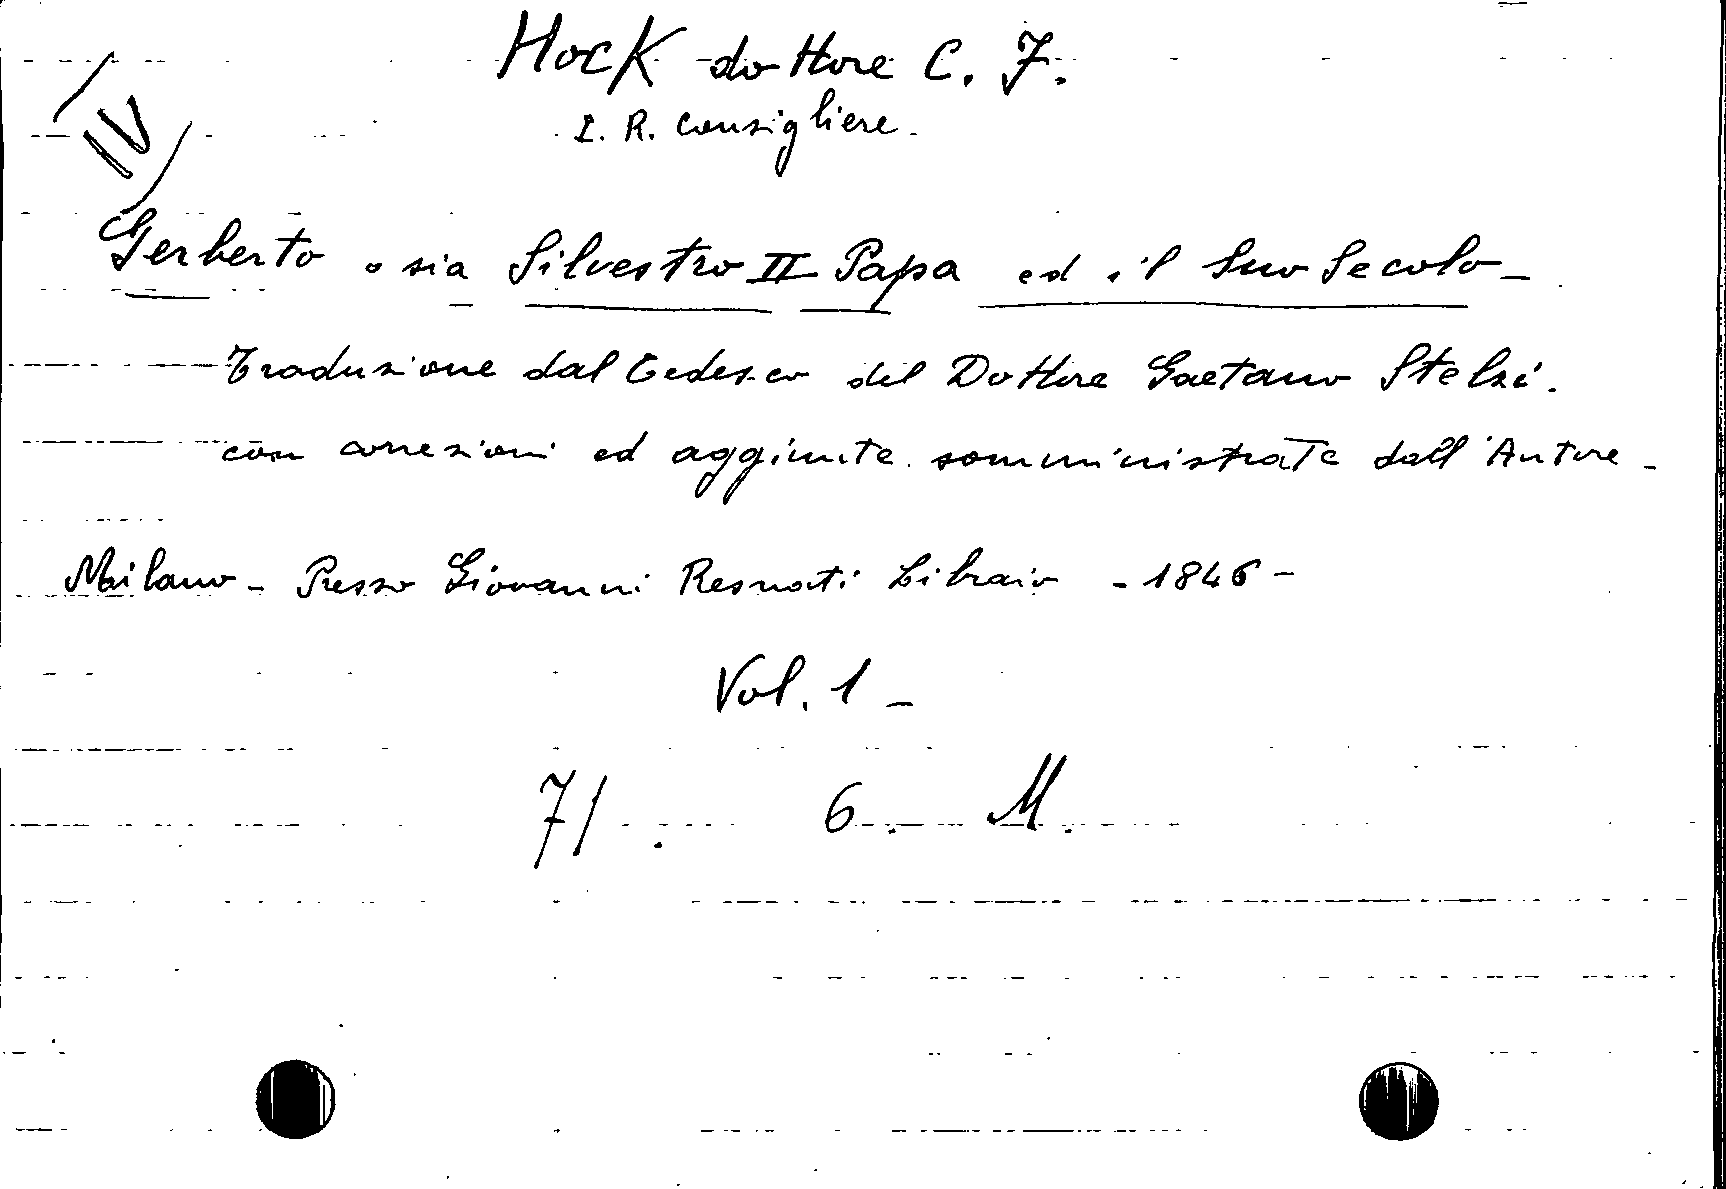 Hock dottore C. F.
I. R. Consigliere.
IV
Gerberto o sia Silvestro II Papa ed il Suo Secolo -
Traduzione dal Tedesco del Dottore Gaetano Stelzi.
con correzioni ed aggiunte somministrate dall'Autore -
Milano - Presso Giovanni Resnati Libraio - 1846 -
Vol. 1 -
71. 6. M.